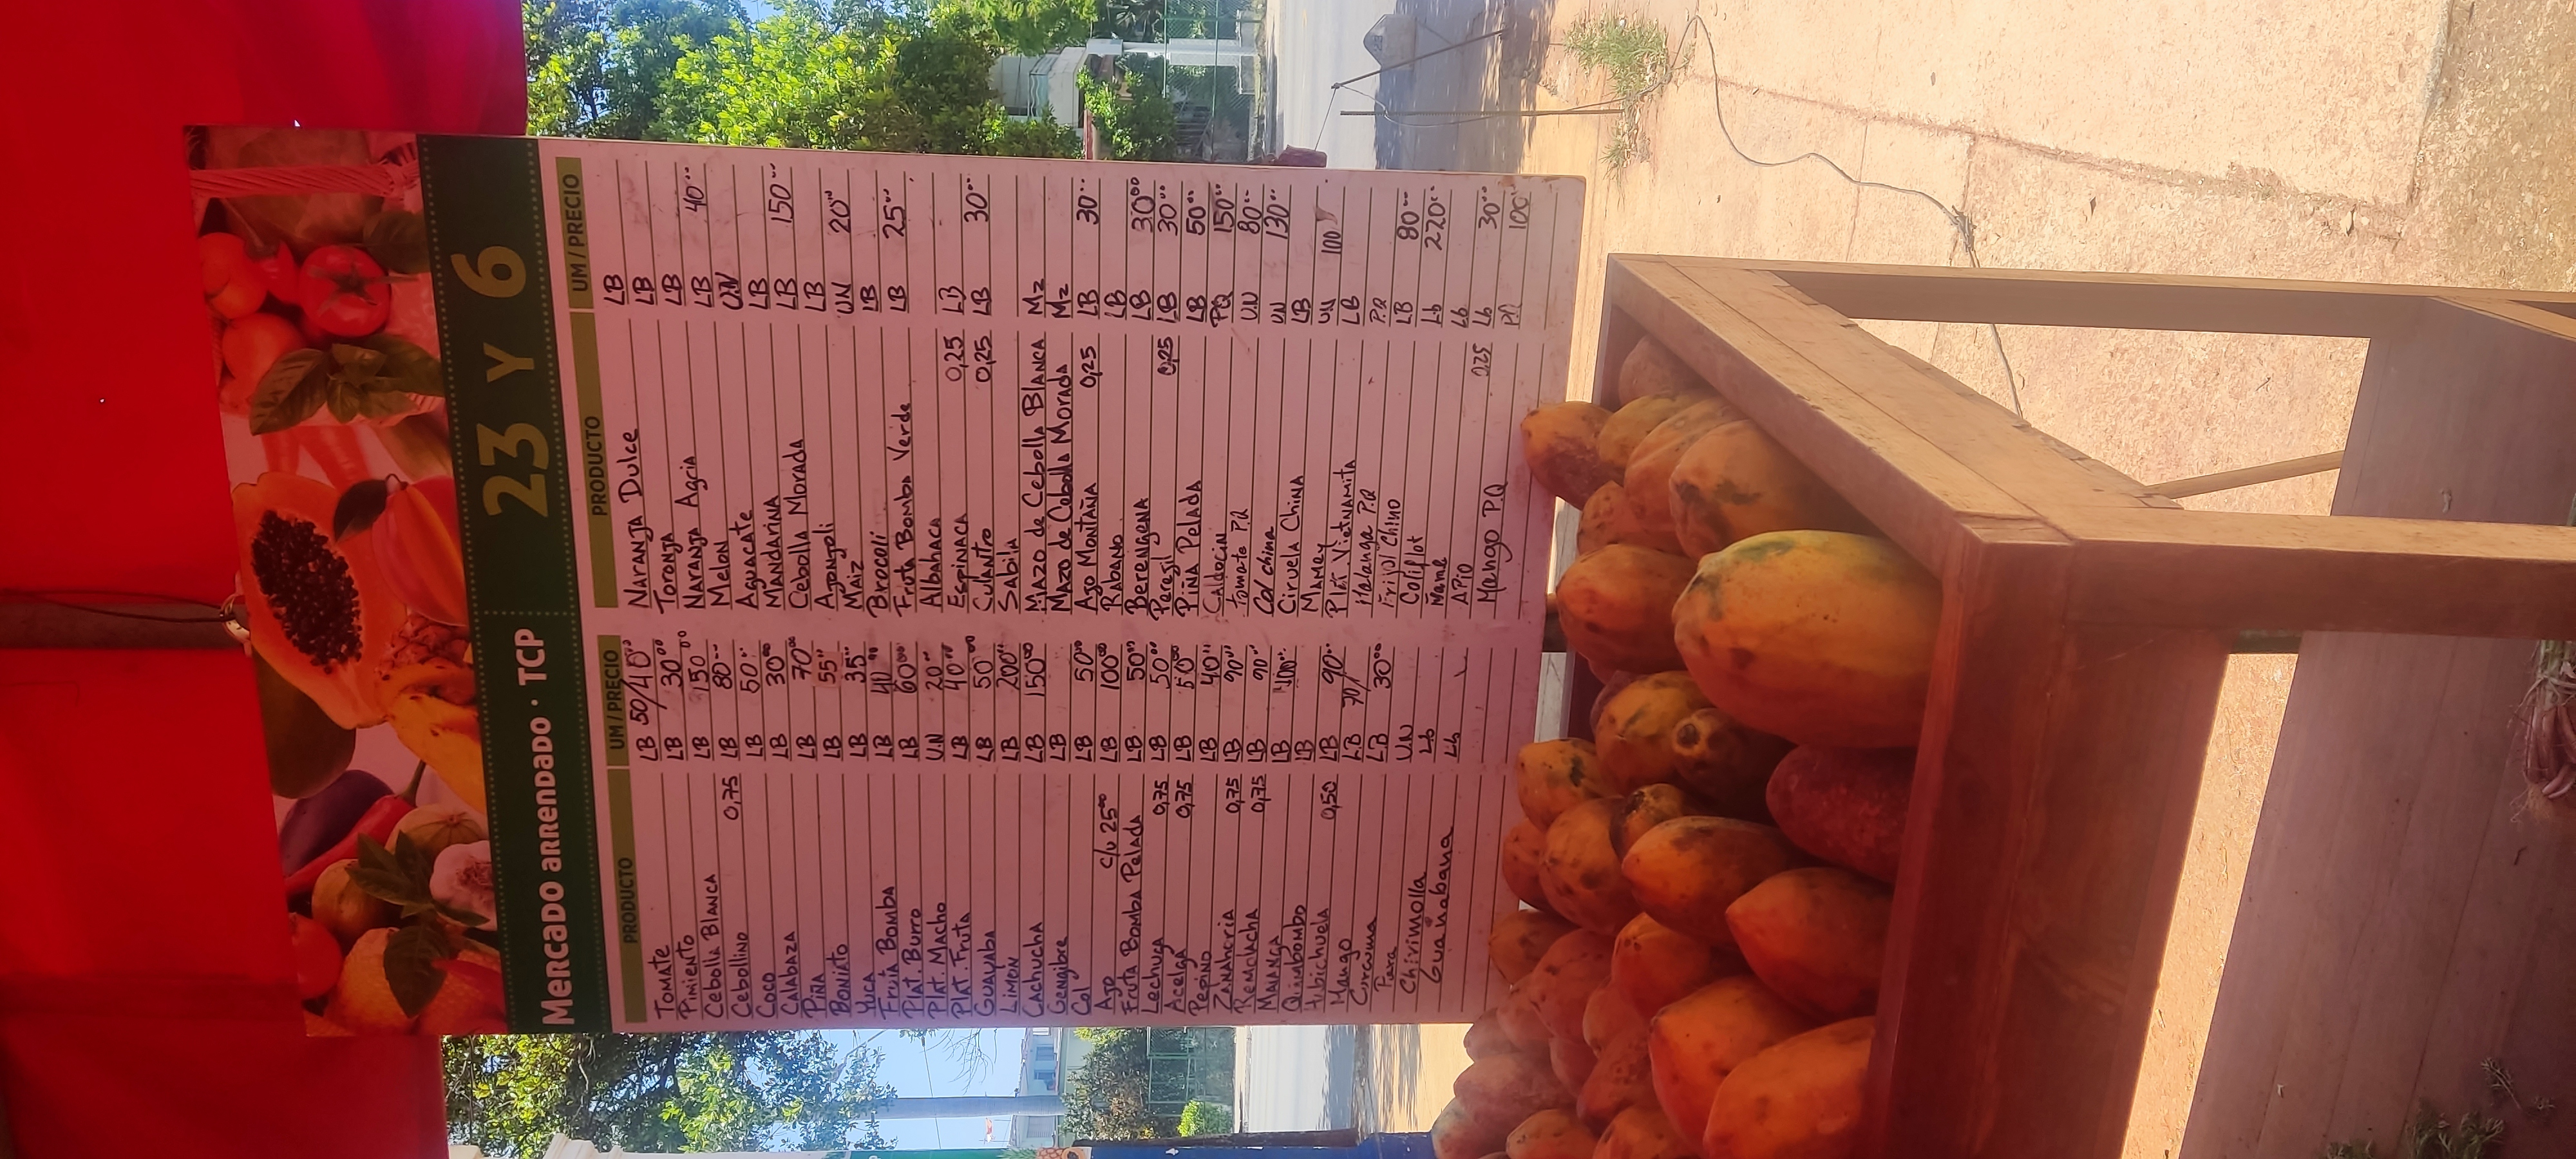 MERCADO ARRENDADO · TCP
23 Y 6
PRODUCTO UM / PRECIO
Tomate LB 50/40⁰⁰
Pimiento LB 30⁰⁰
Cebolla Blanca LB 150⁰⁰
Cebollino 0,75 LB 80--
Coco LB 50--
Calabaza LB 30⁰⁰
Piña LB 70⁰⁰
Boniato LB 55⁰⁰
Yuca LB 35⁰⁰
Fruta Bomba LB 40⁰⁰
Plat. Burro LB 60⁰⁰
Plat. Macho U.N 20--
Plat. Fruta LB 40⁰⁰
Guayaba LB 50⁰⁰
Limon LB 200⁰⁰
Cachucha LB 150⁰⁰
Gengibre LB
Col LB 50⁰⁰
Ajo c/u 25⁰⁰ LB 100⁰⁰
Fruta Bomba Pelada LB 50⁰⁰
Lechuga 0,75 LB 50⁰⁰
Acelga 0,75 LB 50⁰⁰
Pepino LB 40⁰⁰
Zanahoria 0,75 LB 90⁰⁰
Remolacha 0,75 LB 90--
Malanga LB 100--
Quimbombo LB
Habichuela 0,50 LB 90--
Mango LB 70/
Curcuma LB 30⁰⁰
Pera U.N
Chirimolla Lb
Guañabana Lb
PRODUCTO UM / PRECIO
Naranja Dulce LB
Toronja LB
Naranja Agria LB
Melon LB 40--
Aguacate U.N
Mandarina LB
Cebolla Morada LB 150--
Ajonjoli LB
Maiz UN 20⁰⁰
Brocoli LB
Fruta Bomba Verde LB 25--
Albahaca
Espinaca 0,25 LB
Culantro 0,25 LB 30--
Sabila
Mazo de Cebolla Blanca Mz
Mazo de Cebolla Morada Mz
Ajo Montaña 0,25 LB 30--
Rabano LB
Berengena LB 30⁰⁰
Peregil 0,25 LB 30--
Piña Pelada LB 50--
Caldocin PQ 150--
tomate P.Q U.N 80--
Col china UN 130--
Ciruela China LB
Mamey UN 100
Plat. Vietnamita LB
Malanga P.Q PQ
Frijol Chino LB 80--
Coliflot Lb 220--
Ñame Lb
Apio 0.25 Lb 30--
Mango P.Q P.Q 100